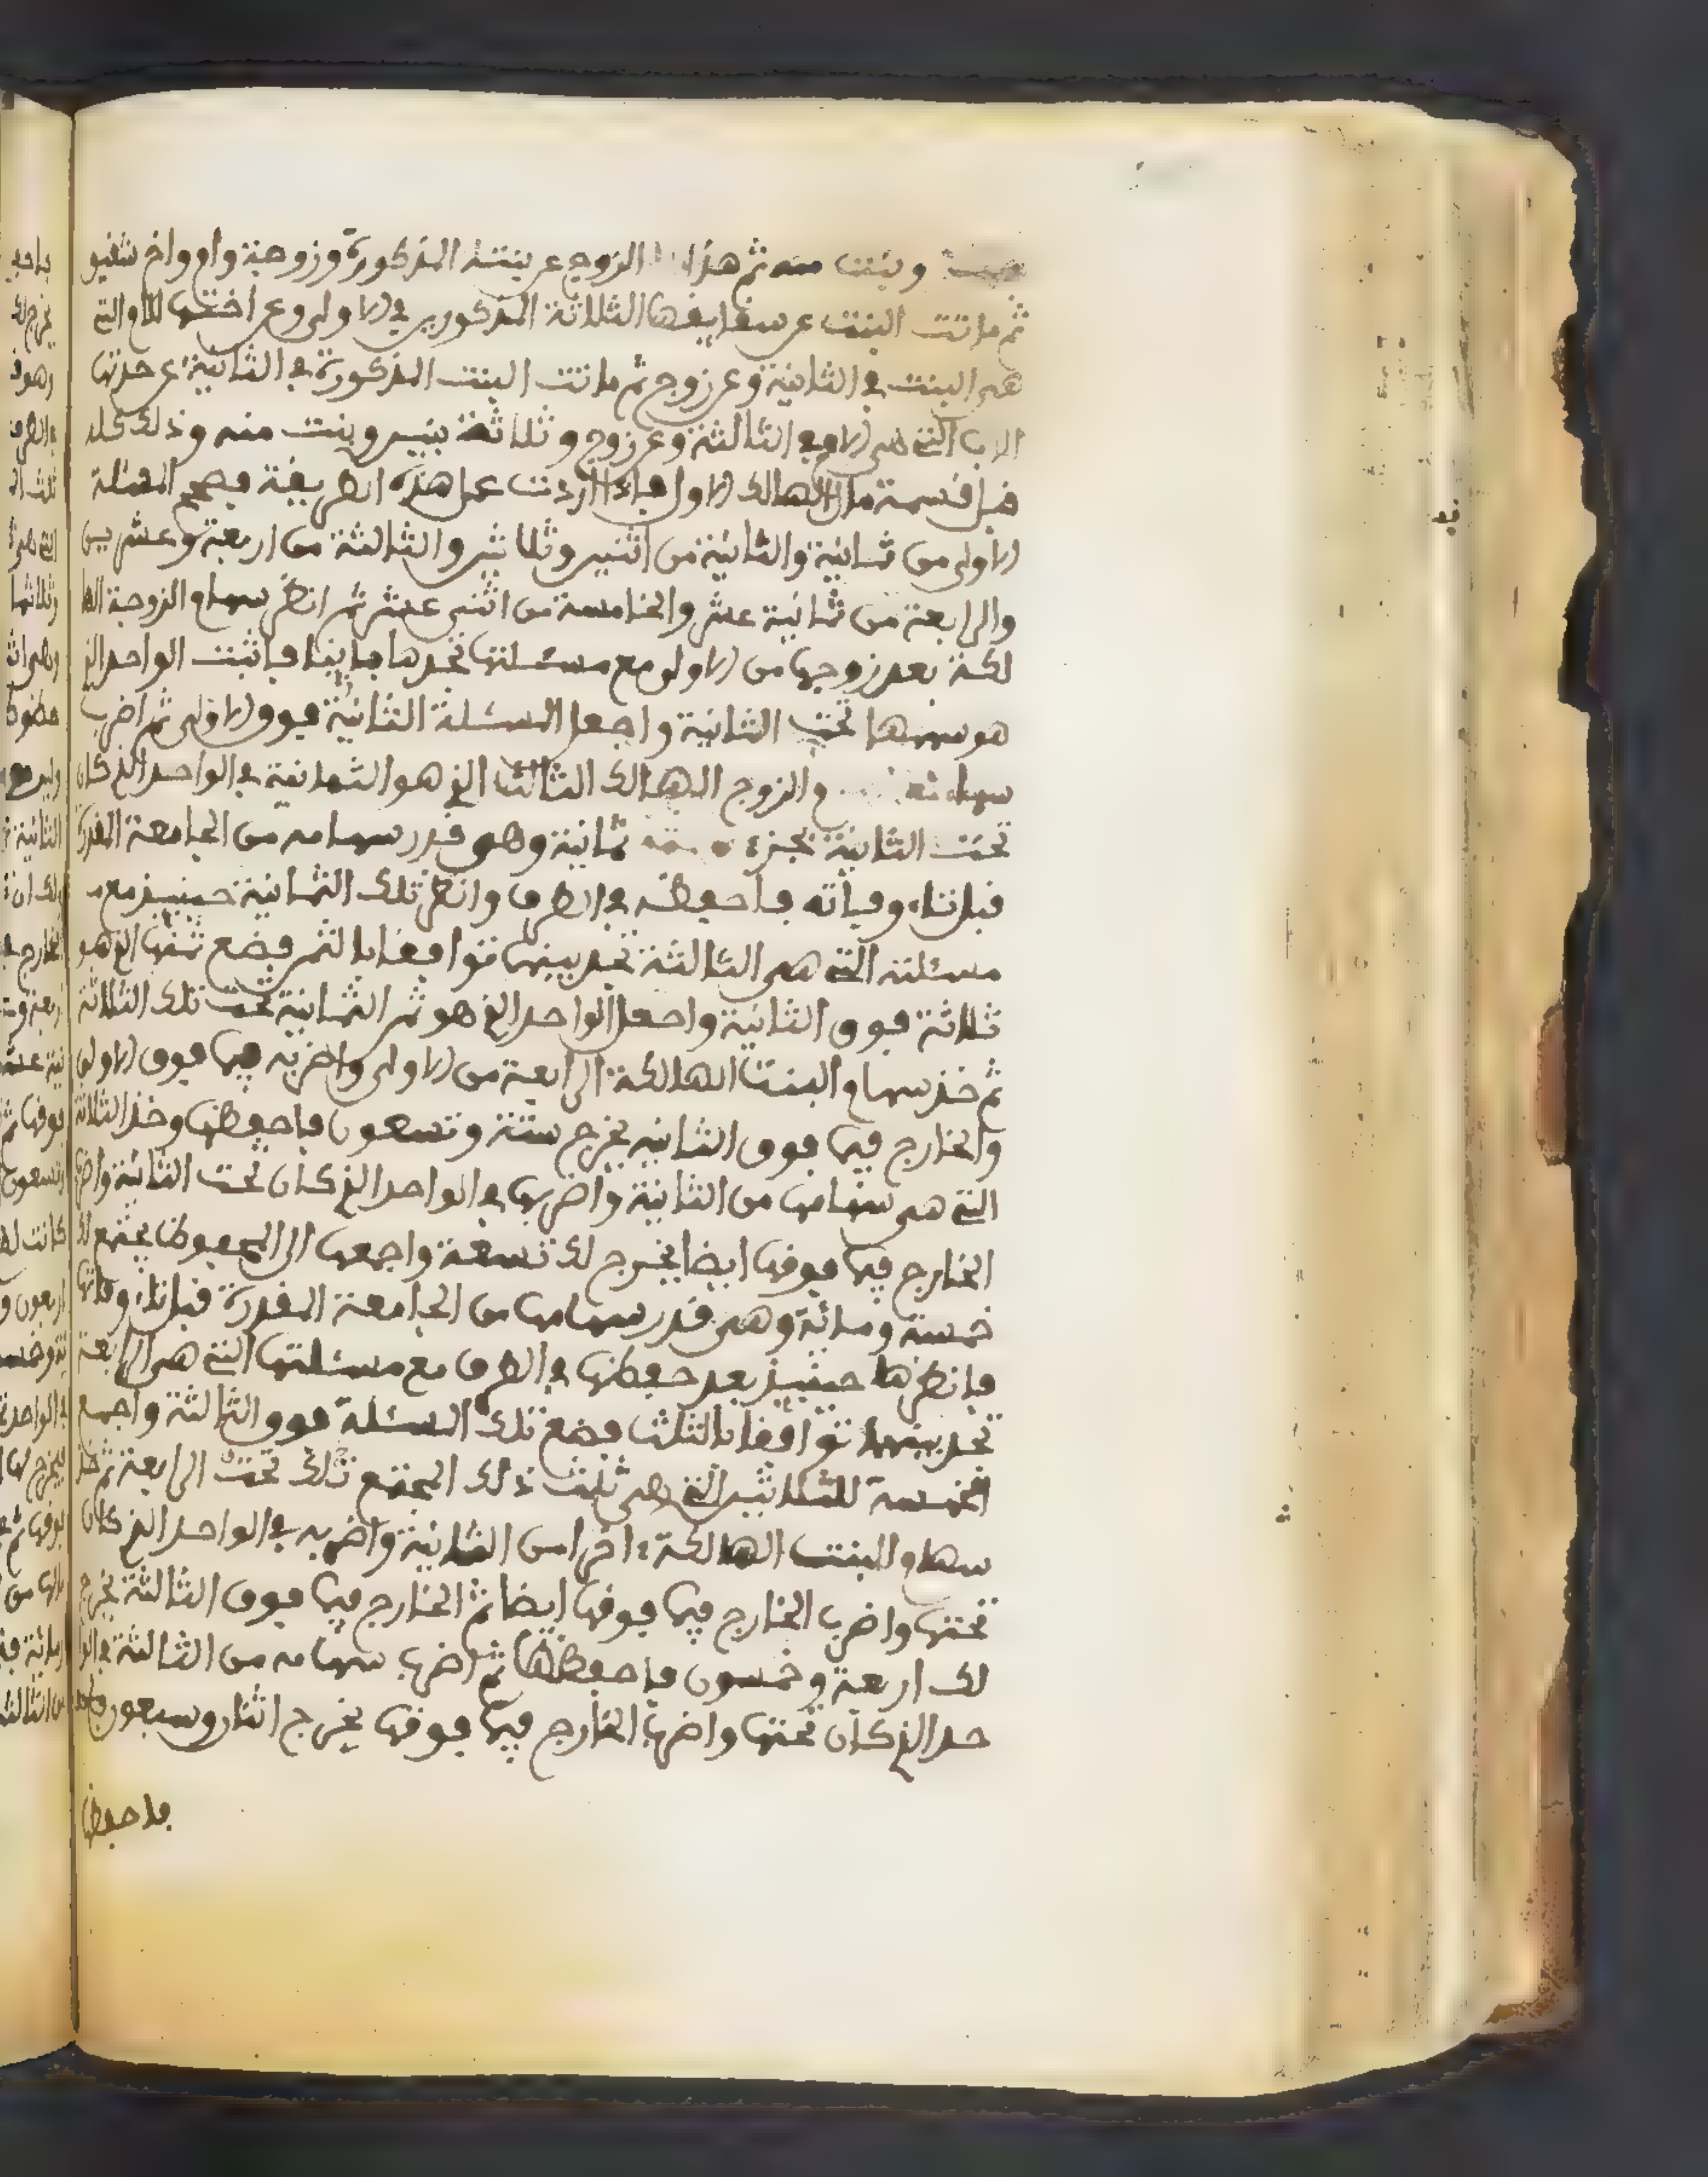 وبنت منه ثم هذا الزوج عن بنته المذكورة وزوجة وام واخ شقيق
ثم ماتت البنت عن شقايقها الثلاثة المذكورين في الاولى وعن اختها للام التي
هي البنت في الثانية وعن زوج ثم ماتت البنت المذكورة في الثانية عن جدتها
الاب التي هي الام في الثالثة وعن زوج وثلاثة بنين وبنت منه وذلك كله
قبل قسمة مال الهالك الاول فاذا اردت عمل هذه الطريقة فصحح المسئلة
الاولى من ثمانية والثانية من اثنين وثلاثين والثالثة من اربعة وعشرين
والرابعة من ثمانية عشر والخامسة من اثني عشر ثم انظر سهام الزوجة الها
لكة بعد زوجها من الاولى مع مسئلتها تجدها مباينا فاثبت الواحد الذي
هو سهمها تحت الثانية واجعل المسئلة الثانية فوق الاولى ثم اضرب
سهام الزوج الهالك الثالث الذي هو الثمانية في الواحد الذي كان
تحت الثانية يخرج ثمانية وهي قدر سهامه من الجامعة المقدرة
قبل تناء وفاته فاحفظه في الطرف وانظر تلك الثمانية حينيذ مع مـ
مسئلته التي هي الثالثة تجد بينها توافقا بالثمن فضع ثمنها الذي هو
ثلاثة فوق الثانية واجعل الواحد الذي هو ثمن الثمانية تحت تلك الثلاثة
ثم خذ سهام البنت الهالكة الرابعة من الاولى واضربه فيما فوق الاولى
والخارج فيما فوق الثانية يخرج ستة وتسعون فاحفظها وخذ الثلاثة
التي هي سهامها من الثانية واضربها في الواحد الذي كان تحت الثانية واضرب
الخارج فيما فوقها ايضا يخرج لك تسعة واجمعها الى المحفوظ يجتمع لك
خمسة ومائة وهي قدر سهامها من الجامعة المقدرة قبل تناء وفاتها
فانظرها حينيذ بعد حفظها في الطرف مع مسئلتها التي هي الرابعة
تجد بينهما توافقا بالثلث فضع تلك المسئلة فوق الثالثة واجمع
الخمسة للثلاثين التي هي ثلث ذلك المجتمع تلك تحت الرابعة ثم خذ
سهام البنت الهالكة اخرا من الثانية واضربه في الواحد الذي كان
تحتها واضرب الخارج فيما فوقها ايضا ثم الخارج فيما فوق الثالثة يخرج
لك اربعة وخمسون فاحفظها ثم اضرب سهامه من الثالثة في الوا
حد الذي كان تحتها واضرب الخارج فيما فوقها يخرج اثنان وسبعون
فاحفظها